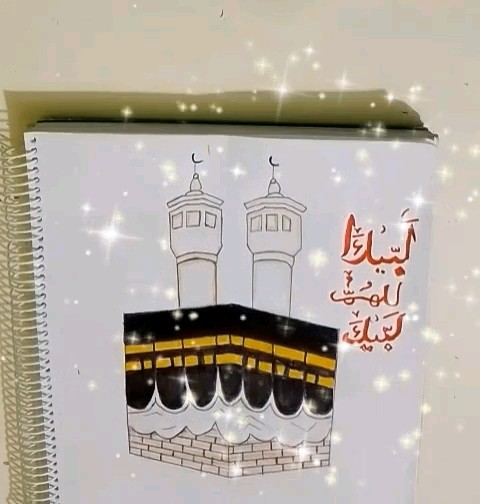 لَبَّيْكَ
اللهُمَّ
لَبَّيْكَ